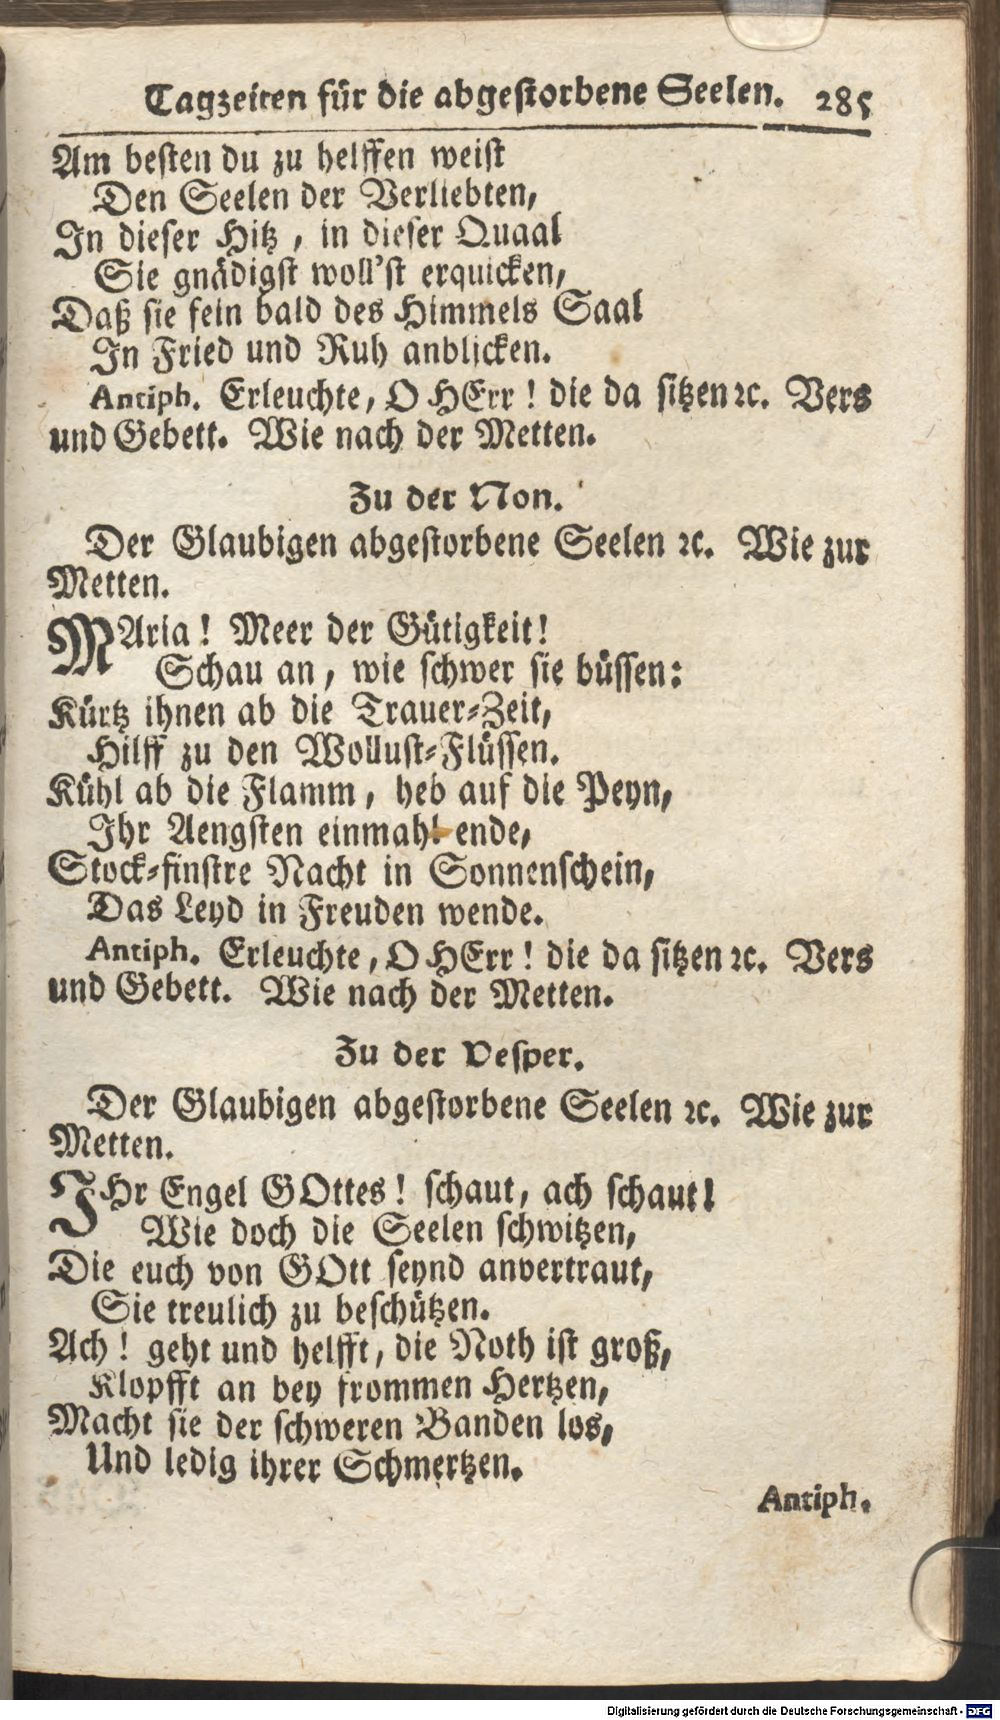 Tagzeiten für die abgestorbene Seelen. 285
Am besten du zu helffen weist
Den Seelen der Verliebten,
In dieser Hitz, in dieser Quaal
Sie gnädigst woll'st erquicken,
Daß sie fein bald des Himmels Saal
In Fried und Ruh anblicken.
Antiph. Erleuchte, O HErr! die da sitzen ꝛc. Vers
und Gebett. Wie nach der Metten.
Zu der Non.
Der Glaubigen abgestorbene Seelen ꝛc. Wie zur
Metten.
MAria! Meer der Gütigkeit!
Schau an, wie schwer sie büssen:
Kürtz ihnen ab die Trauer-Zeit,
Hilff zu den Wollust-Flüssen.
Kühl ab die Flamm, heb auf die Peyn,
Ihr Aengsten einmahl ende,
Stock-finstre Nacht in Sonnenschein,
Das Leyd in Freuden wende.
Antiph. Erleuchte, O HErr! die da sitzen ꝛc. Vers
und Gebett. Wie nach der Metten.
Zu der Vesper.
Der Glaubigen abgestorbene Seelen ꝛc. Wie zur
Metten.
IHr Engel GOttes! schaut, ach schaut!
Wie doch die Seelen schwitzen,
Die euch von GOtt seynd anvertraut,
Sie treulich zu beschützen.
Ach! geht und helfft, die Noth ist groß,
Klopfft an bey frommen Hertzen,
Macht sie der schweren Banden los,
Und ledig ihrer Schmertzen.
Antiph.
Digitalisierung gefördert durch die Deutsche Forschungsgemeinschaft - DFG